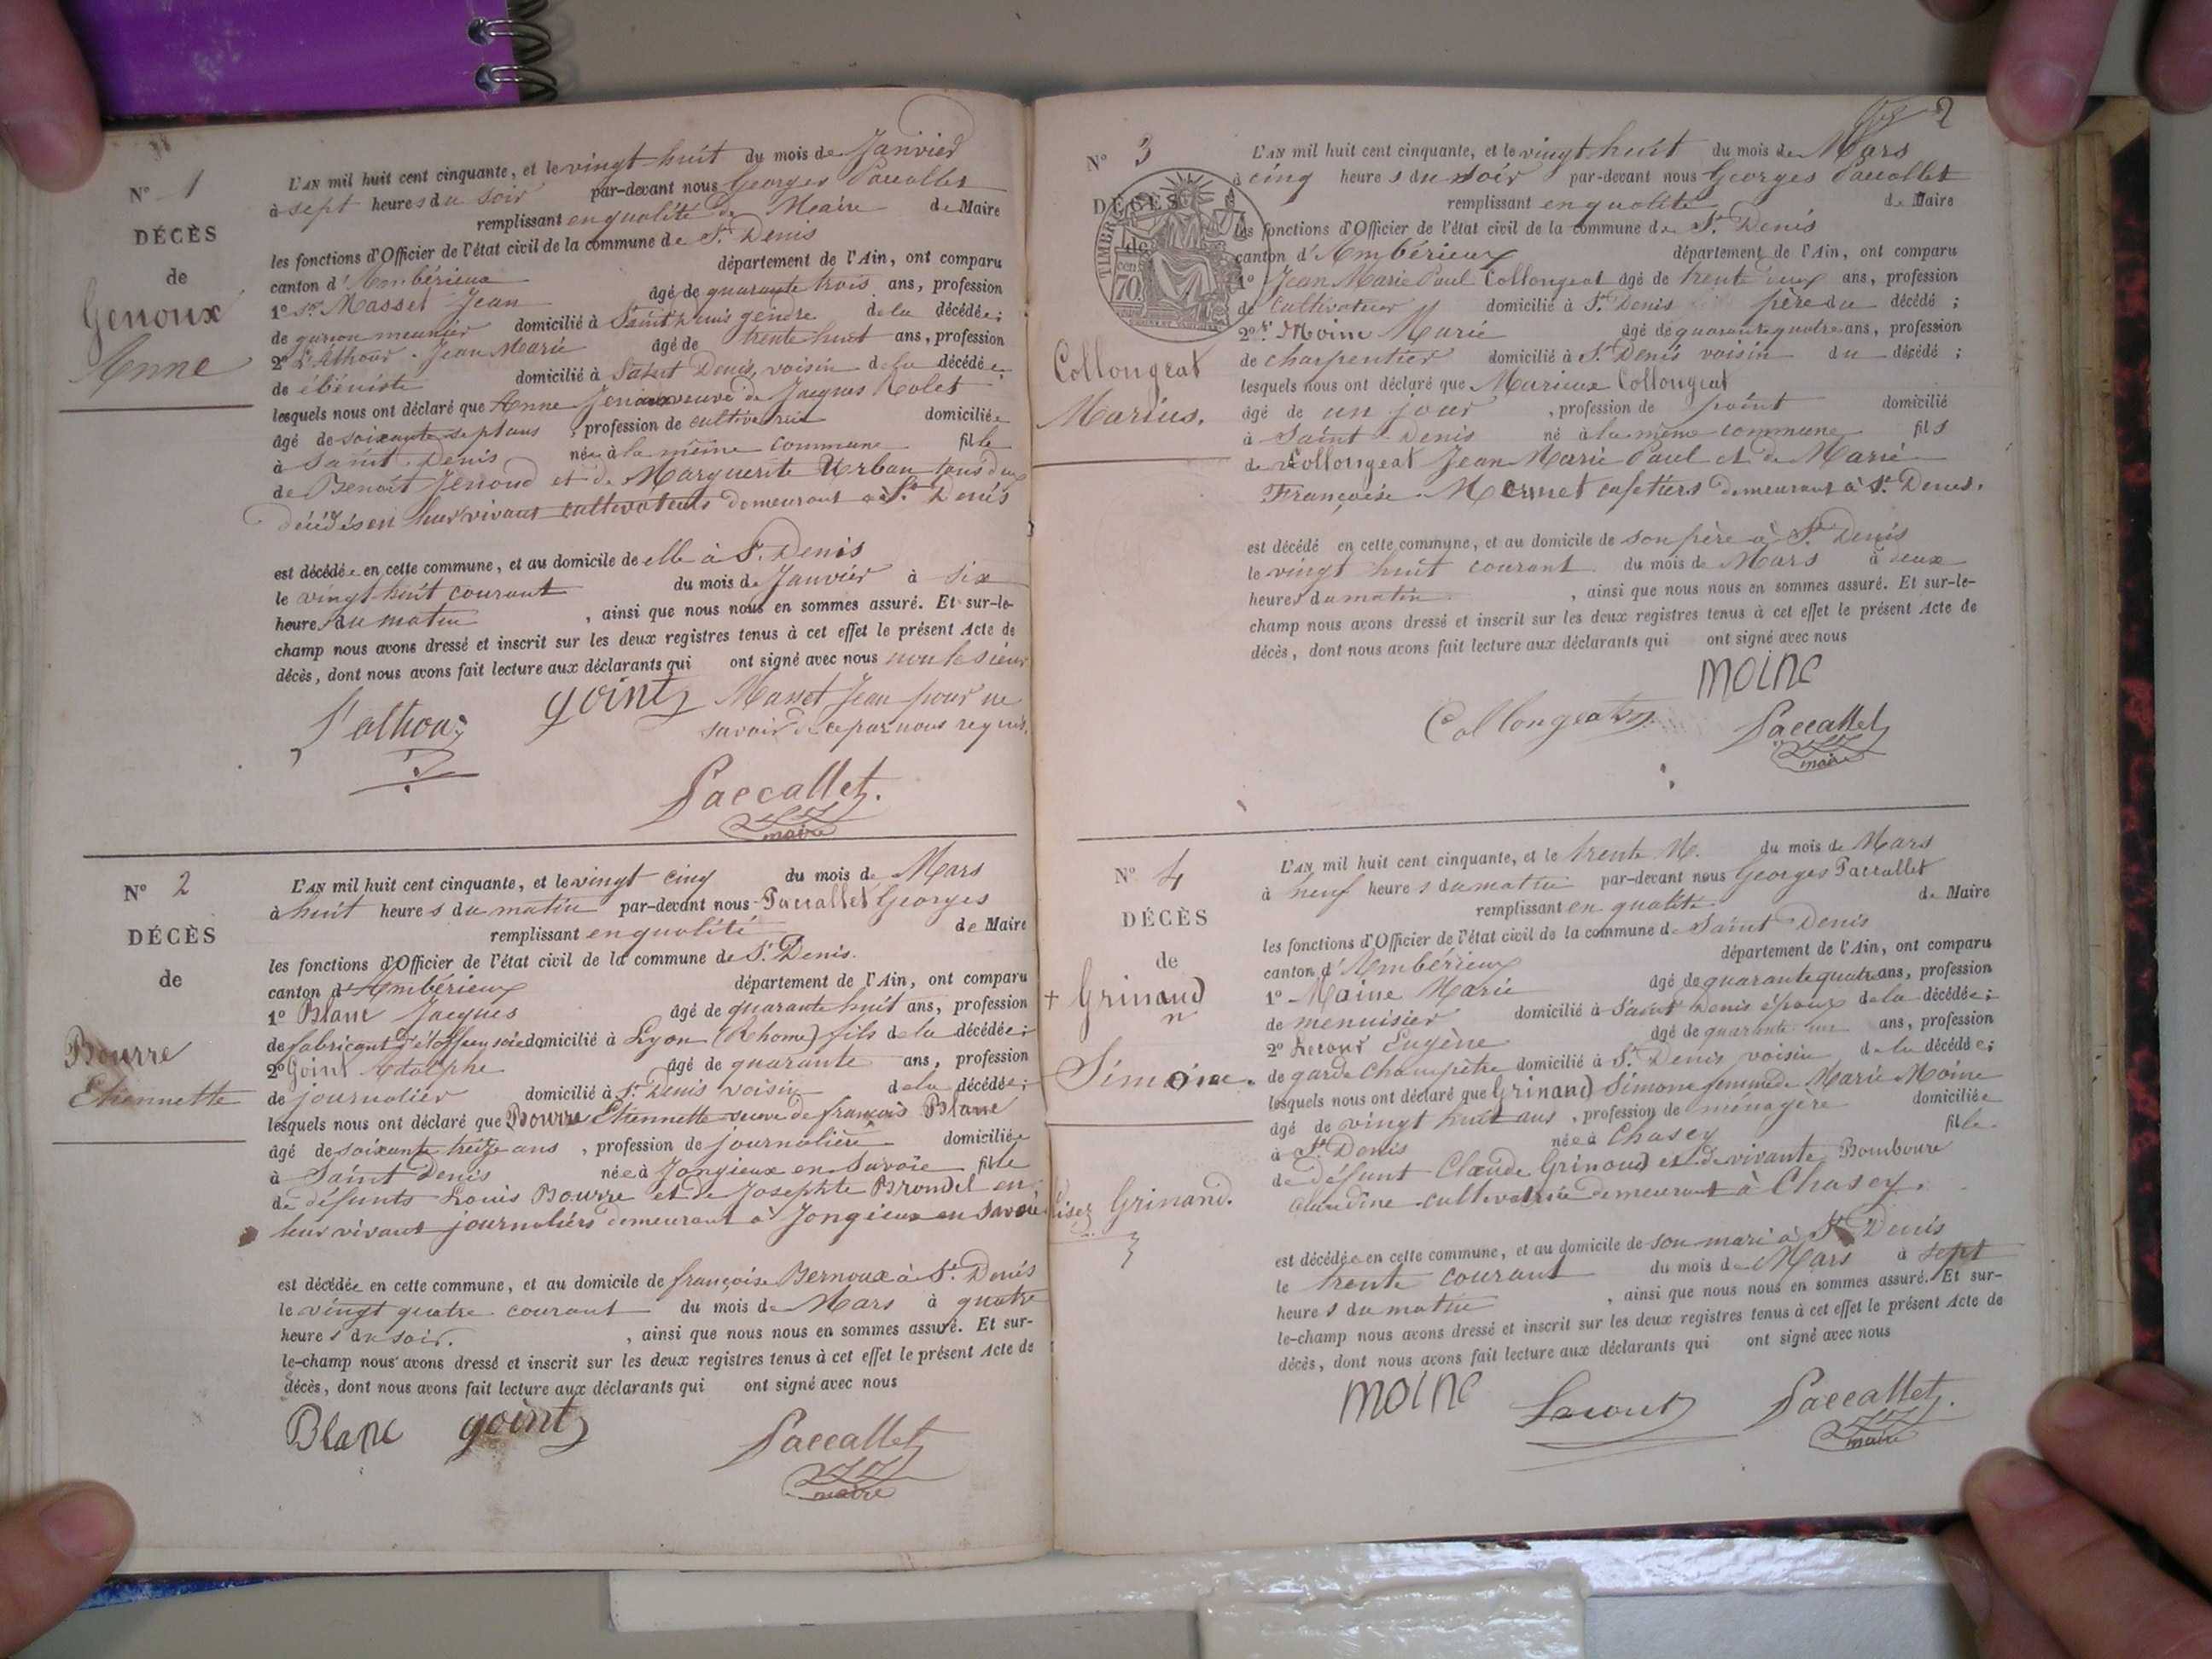 N° 1
DÉCÈS
de
Genoux
Anne
L'AN mil huit cent cinquante, et le vingt huit du mois de Janvier
à sept heures du soir par-devant nous Georges Paccallet
remplissant en qualité de Maire de Maire
les fonctions d'Officier de l'état civil de la commune de St. Denis
canton d'Ambérieux département de l'Ain, ont comparu
1° Sr. Masset Jean âgé de quarante trois ans, profession
de garçon meunier domicilié à Saint Denis gendre de la décédée;
2° Jean Marie âgé de trente huit ans, profession
de ébéniste domicilié à Saint Denis, voisin de la décédée;
lesquels nous ont déclaré que Anne veuve de Jacques Rolet
âgé de soixante sept ans, profession de cultivatrice domiciliée
à Saint Denis née à la même commune fille
de Benoît Jenoud et de Marguerite Urban tous deux
décédés en leur vivant cultivateurs demeurant à St. Denis
est décédée en cette commune, et au domicile de elle à St. Denis
le vingt huit courant du mois de Janvier à six
heures du matin, ainsi que nous nous en sommes assuré. Et sur-le-
champ nous avons dressé et inscrit sur les deux registres tenus à cet effet le présent Acte de
décès, dont nous avons fait lecture aux déclarants qui ont signé avec nous non le sieur
Masset Jean pour ne
savoir de ce par nous requis.
goint
Paccallet
maire
N° 2
DÉCÈS
de
Bourre
Etiennette
L'AN mil huit cent cinquante, et le vingt cinq du mois de Mars
à huit heures du matin par-devant nous Paccallet Georges
remplissant en qualité de Maire
les fonctions d'Officier de l'état civil de la commune de St. Denis.
canton d'Ambérieux département de l'Ain, ont comparu
1° Blanc Jacques âgé de quarante huit ans, profession
de fabricant d'étoffe en soie domicilié à Lyon (Rhone) fils de la décédée;
2° Goint Adolphe âgé de quarante ans, profession
de journalier domicilié à St. Denis voisin de la décédée;
lesquels nous ont déclaré que Bourre Etiennette veuve de françois Blanc
âgé de soixante treize ans, profession de journalière domiciliée
à Saint Denis née à Jongieux en Savoie fille
de défunts Louis Bourre et de Josephte Brondel en
leur vivant journaliers demeurant à Jongieux en Savoie
est décédée en cette commune, et au domicile de françoise Bernoux à St. Denis
le vingt quatre courant du mois de Mars à quatre
heures du soir., ainsi que nous nous en sommes assuré. Et sur-
le-champ nous avons dressé et inscrit sur les deux registres tenus à cet effet le présent Acte de
décès, dont nous avons fait lecture aux déclarants qui ont signé avec nous
Blanc goint Paccallet
maire
2
N° 3
DÉCÈS
TIMBRE
de
cen
70
Collongeat
Marius.
L'AN mil huit cent cinquante, et le vingt huit du mois de Mars
à cinq heures du soir par-devant nous Georges Paccallet
remplissant en qualité de Maire
les fonctions d'Officier de l'état civil de la commune de St. Denis
canton d'Ambérieux département de l'Ain, ont comparu
1° Jean Marie Paul Collongeat âgé de trente deux ans, profession
de cultivateur domicilié à St. Denis père du décédé;
2° Sr. Moine Marie âgé de quarante quatre ans, profession
de charpentier domicilié à St. Denis voisin du décédé;
lesquels nous ont déclaré que Marieux Collongeat
âgé de un jour, profession de point domicilié
à Saint Denis né à la même commune fils
de Collongeat Jean Marie Paul et de Marie
Françoise cafetiers demeurant à St. Denis.
est décédé en cette commune, et au domicile de son père à St. Denis
le vingt huit courant du mois de Mars à deux
heures du matin, ainsi que nous nous en sommes assuré. Et sur-le-
champ nous avons dressé et inscrit sur les deux registres tenus à cet effet le présent Acte de
décès, dont nous avons fait lecture aux déclarants qui ont signé avec nous
moine
Collongeat Paccallet
maire
N° 4
DÉCÈS
de
+ Grinand
n
Simone.
lisez Grinand.
L'AN mil huit cent cinquante, et le trente du mois de Mars
à neuf heures du matin par-devant nous Georges Paccallet
remplissant en qualité de Maire
les fonctions d'Officier de l'état civil de la commune de Saint Denis
canton d'Ambérieux département de l'Ain, ont comparu
1° Moine Marie âgé de quarante quatre ans, profession
de menuisier domicilié à Saint Denis époux de la décédée;
2° Eugène âgé de quarante ans, profession
de garde champêtre domicilié à St. Denis voisin de la décédée;
lesquels nous ont déclaré que Grinand Simone femme de Marie Moine
âgé de vingt huit ans, profession de ménagère domiciliée
à St. Denis née à Chasey fille
de défunt Claude Grinoud et de vivante Bomboure
Claudine cultivatrice demeurant à Chasey.
est décédée en cette commune, et au domicile de son mari à St. Denis
le trente courant du mois de Mars à sept
heures du matin, ainsi que nous nous en sommes assuré. Et sur-
le-champ nous avons dressé et inscrit sur les deux registres tenus à cet effet le présent Acte de
décès, dont nous avons fait lecture aux déclarants qui ont signé avec nous
moine Paccallet
maire